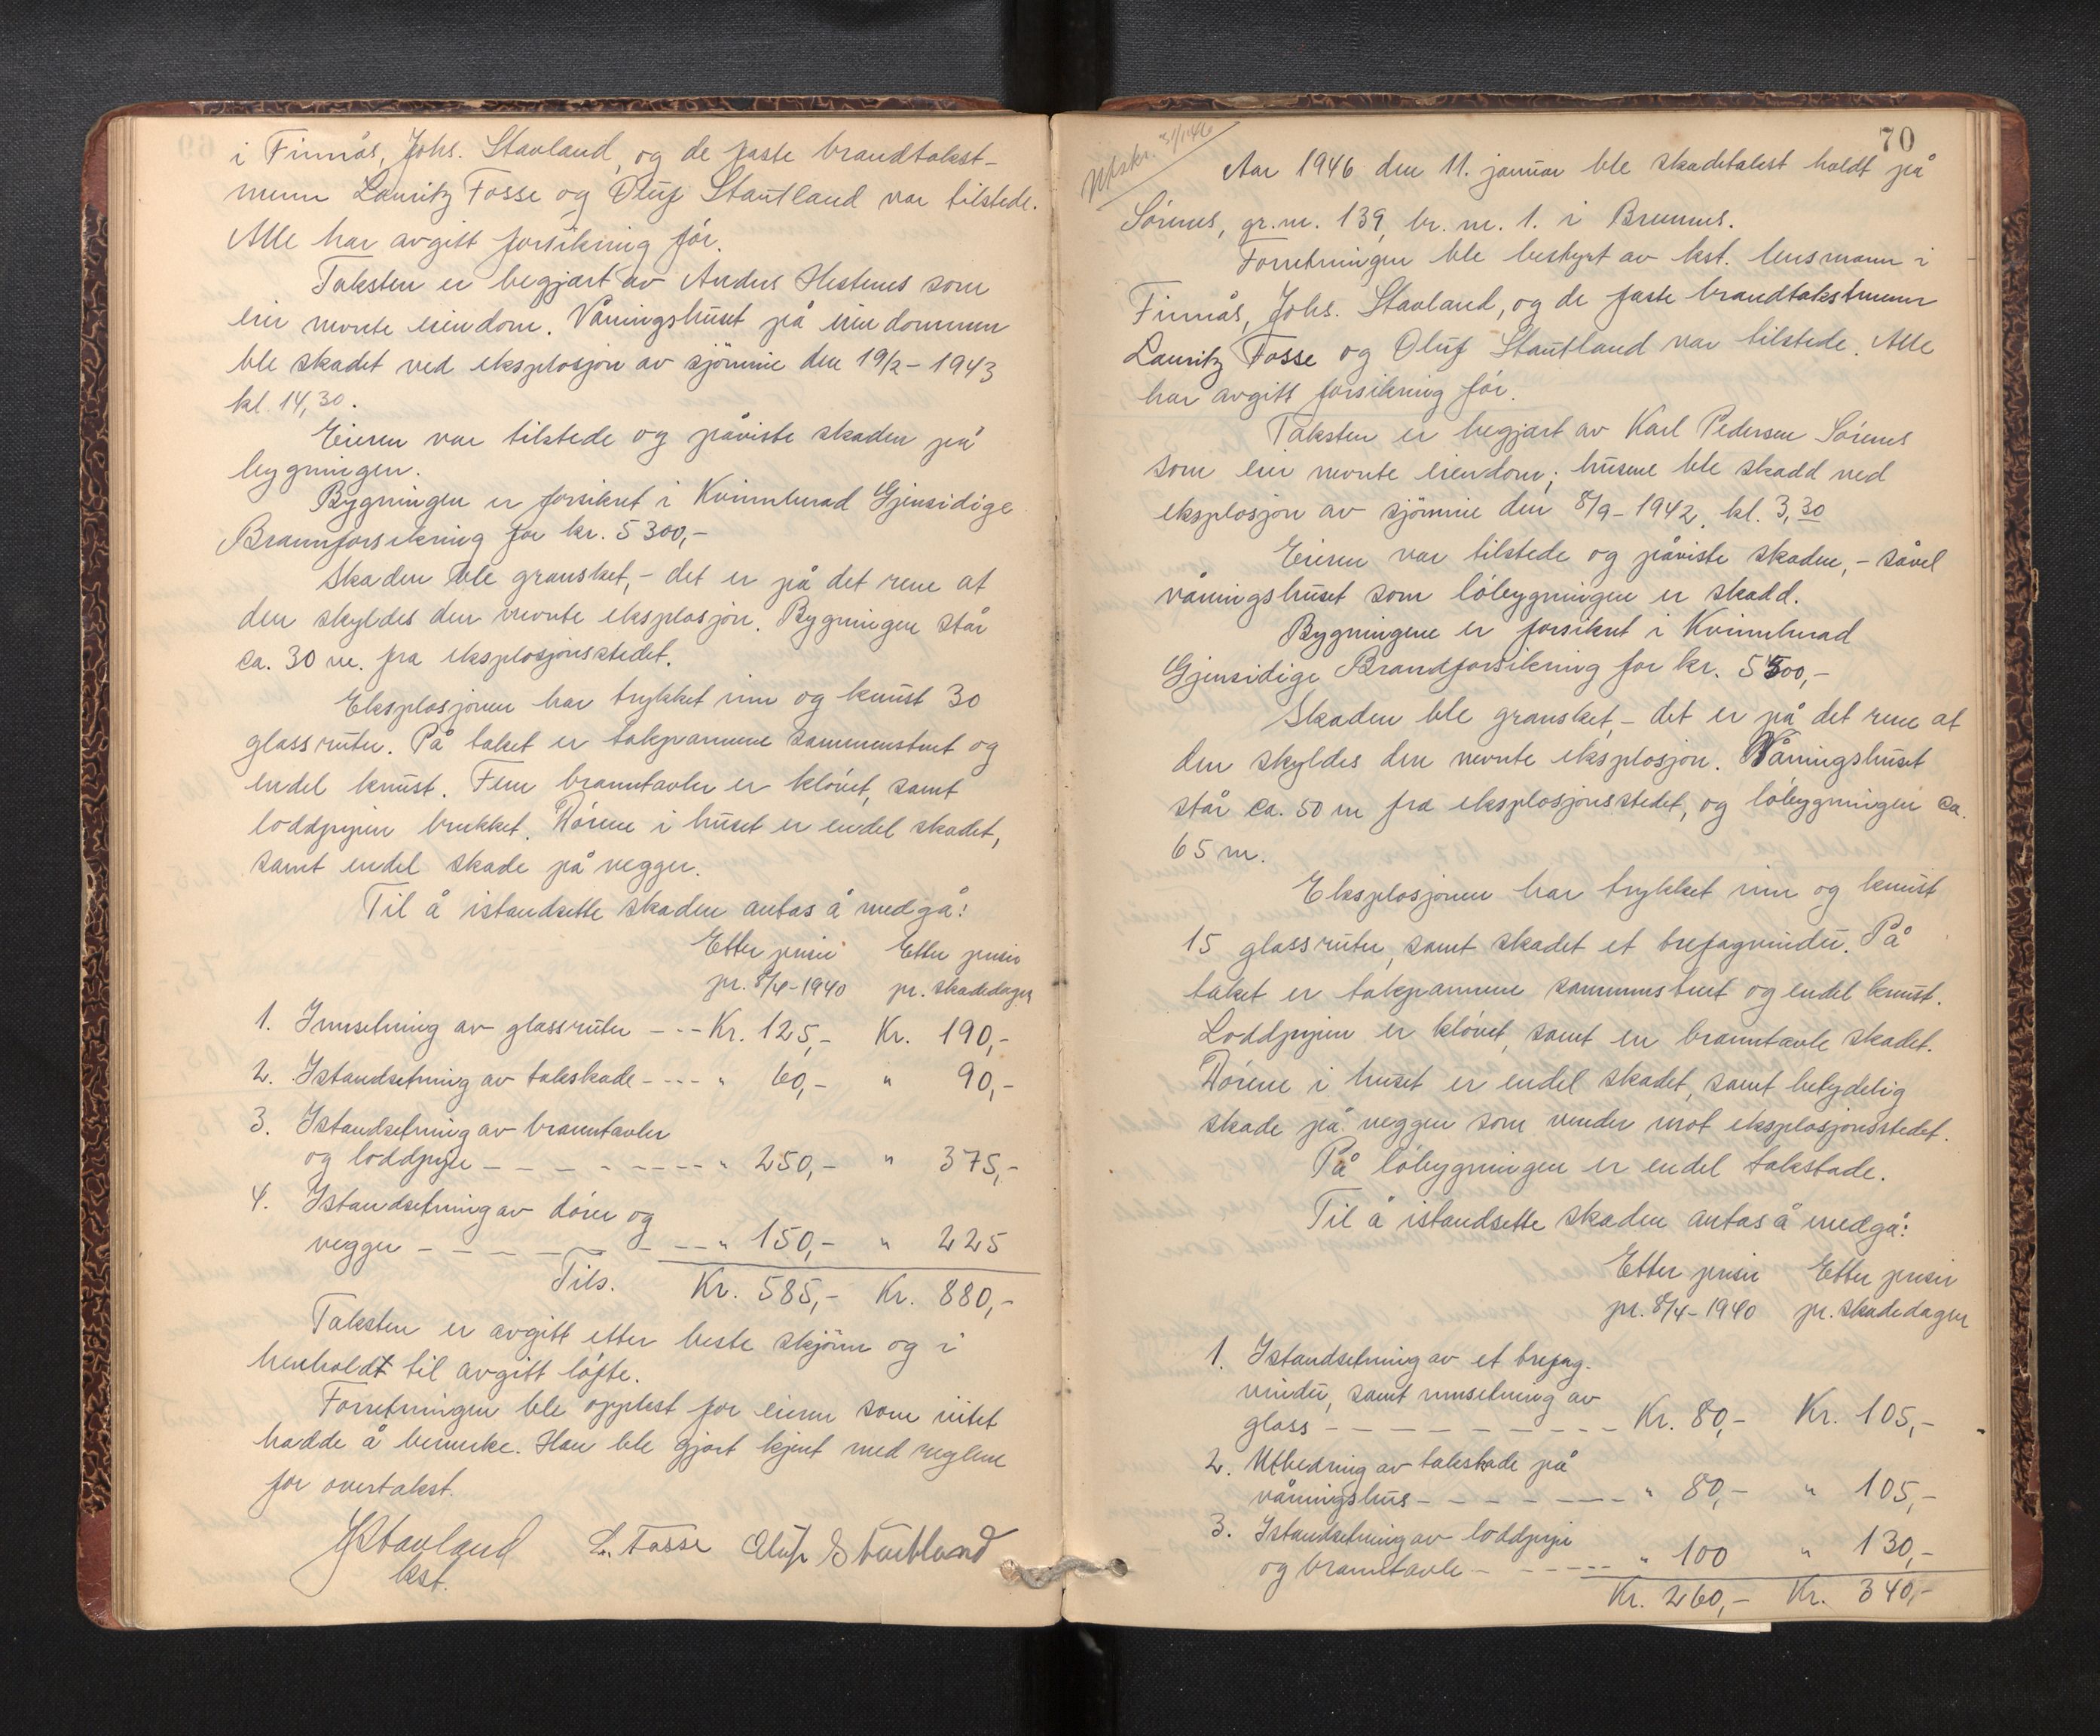 i Finnås, Johs. Stavland, og de faste brandtakst-
menn Lauritz Fosse og Oluf Stautland var tilstede.
Alle har avgitt forsikring før.
Taksten er begjært av Anders Hestenes som
eier nevnte eiendom. Våningshuset på eiendommen
ble skadet ved eksplosjon av sjömine den 19/2 - 1943
kl. 14,30.
Eieren var tilstede og påviste skaden på
bygningen.
Bygningen er forsikret i Kvinnherad Gjensidige
Brannforsikring for kr. 5300,-
Skaden ble gransket, - det er på det rene at
den skyldes den nevnte eksplosjon. Bygningen står
ca. 30 m. fra eksplosjonsstedet.
Eksplosjonen har trykket inn og knust 30
glassruter. På taket er takpannene sammenstuet og
endel knust. Fem branntavler er kløvet, samt
loddpipen brukket. Dørene i huset er endel skadet,
samt endel skade på vegger.
Til å istandsette skaden antas å medgå:
Etter priser Etter priser
pr. 8/4-1940 pr. skadedagen
1. Innsetning av glassruter - - - Kr. 125,- Kr. 190,-
2. Istandsetning av takskade - - - - " 60,- " 90,-
3. Istandsetning av branntavler
og loddpipe - - - - - - - - - " 250,- " 375,-
4. Istandsetning av dører og
vegger - - - - - - - - " 150,- " 225
Tils. Kr. 585,- Kr. 880,-
Taksten er avgitt etter beste skjønn og i
henholdt til avgitt løfte.
Forretningen ble opplest for eieren som intet
hadde å bemerke. Han ble gjort kjent med reglene
for overtakst.
JStavland L. Fosse Oluf Stautland
kst.
70
Utskr. 31/1 46
Aar 1946 den 11. januar ble skadetakst holdt på
Sørenes, gr.nr. 139, br. nr. 1. i Bremnes.
Forretningen ble bestyrt av kst. lensmann i
Finnås, Johs. Stavland, og de faste brandtakstmenn
Lauritz Fosse og Oluf Stautland var tilstede. Alle
har avgitt forsikring før.
Taksten er begjært av Karl Pedersen Sørenes
som eier nevnte eiendom; husene ble skadd ved
eksplosjon av sjömine den 8/9 - 1942. kl. 3,30
Eieren var tilstede og påviste skaden, - såvel
våningshuset som løbygningen er skadd.
Bygningene er forsikret i Kvinnherad
Gjensidige Brandforsikring for kr. 5500,-
Skaden ble gransket, - det er på det rene at
den skyldes den nevnte eksplosjon. Våningshuset
står ca. 50 m fra eksplosjonsstedet, og løbygningen ca.
65 m.
Eksplosjonen har trykket inn og knust
15 glassruter, samt skadet et trefagvindu. På
taket er takpannene sammenstuet og endel knust.
Loddpipen er kløvet, samt en branntavle skadet.
Dørene i huset er endel skadet, samt betydelig
skade på veggen som vender mot eksplosjonsstedet.
På løbygningen er endel takskade.
Til å istandsette skaden antas å medgå:
Etter priser Etter priser
pr. 8/4-1940 pr. skadedagen
1. Istandsetning av et trefag.
vindu, samt innsetning av
glass - - - - - - - - - Kr. 80,- Kr. 105,-
2. Utbedring av takskade på
våningshus - - - - - - - - " 80,- " 105,-
3. Istandsetning av loddpipe
og branntavle - - - - - - " 100 " 130,-
Kr. 260,- Kr. 340,-